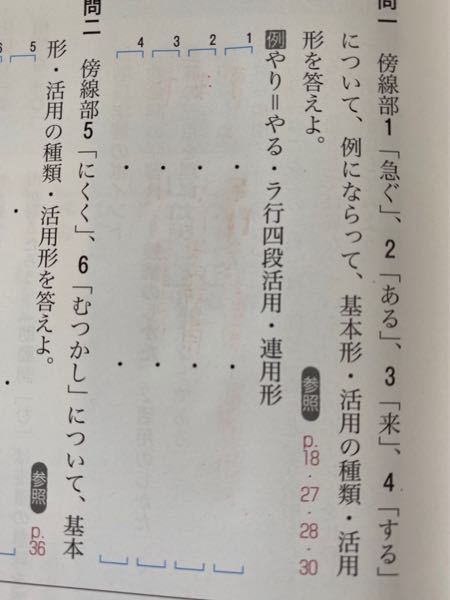 問一 傍線部1「急ぐ」、2「ある」、3「来」、4「する」
について、例にならって、基本形・活用の種類・活用
形を答えよ。
参照 p.18・27・28・30
例 やり＝やる・ラ行四段活用・連用形
1 ・ ・
2 ・ ・
3 ・ ・
4 ・ ・
問二 傍線部5「にくく」、6「むつかし」について、基本
形・活用の種類・活用形を答えよ。
参照 p.36
5 ・ ・
6